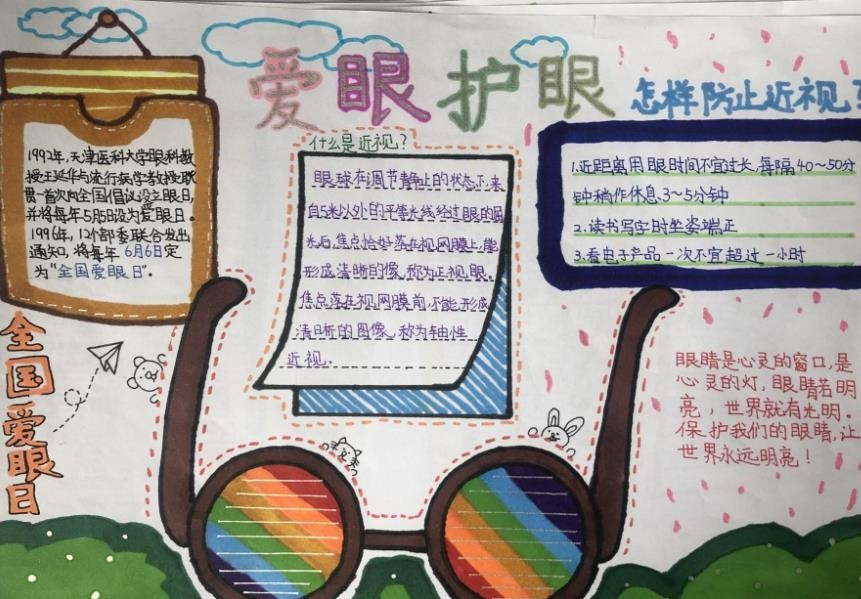 爱眼护眼
1992年,天津医科大学眼科教
授王延华与流行病学教授耿
贯一首次向全国倡议设立眼日,
并将每年5月5日设为爱眼日。
1996年,12个部委联合发出
通知,将每年 6月6日定
为“全国爱眼日”.
什么是近视?
眼球在调节静止的状态下,来
自5米以外的平等光线经过眼的屈
光后,焦点恰好落在视网膜上,能
形成清晰的像,称为正视眼。
焦点落在视网膜前,不能形成
清晰的图像,称为轴性
近视.
怎样防止近视?
1.近距离用眼时间不宜过长,每隔40～50分
钟稍作休息,3～5分钟
2.读书写字时坐姿端正
3.看电子产品一次不宜超过一小时
全国爱眼日
眼睛是心灵的窗口,是
心灵的灯,眼睛若明
亮,世界就有光明。
保护我们的眼睛,让
世界永远明亮!